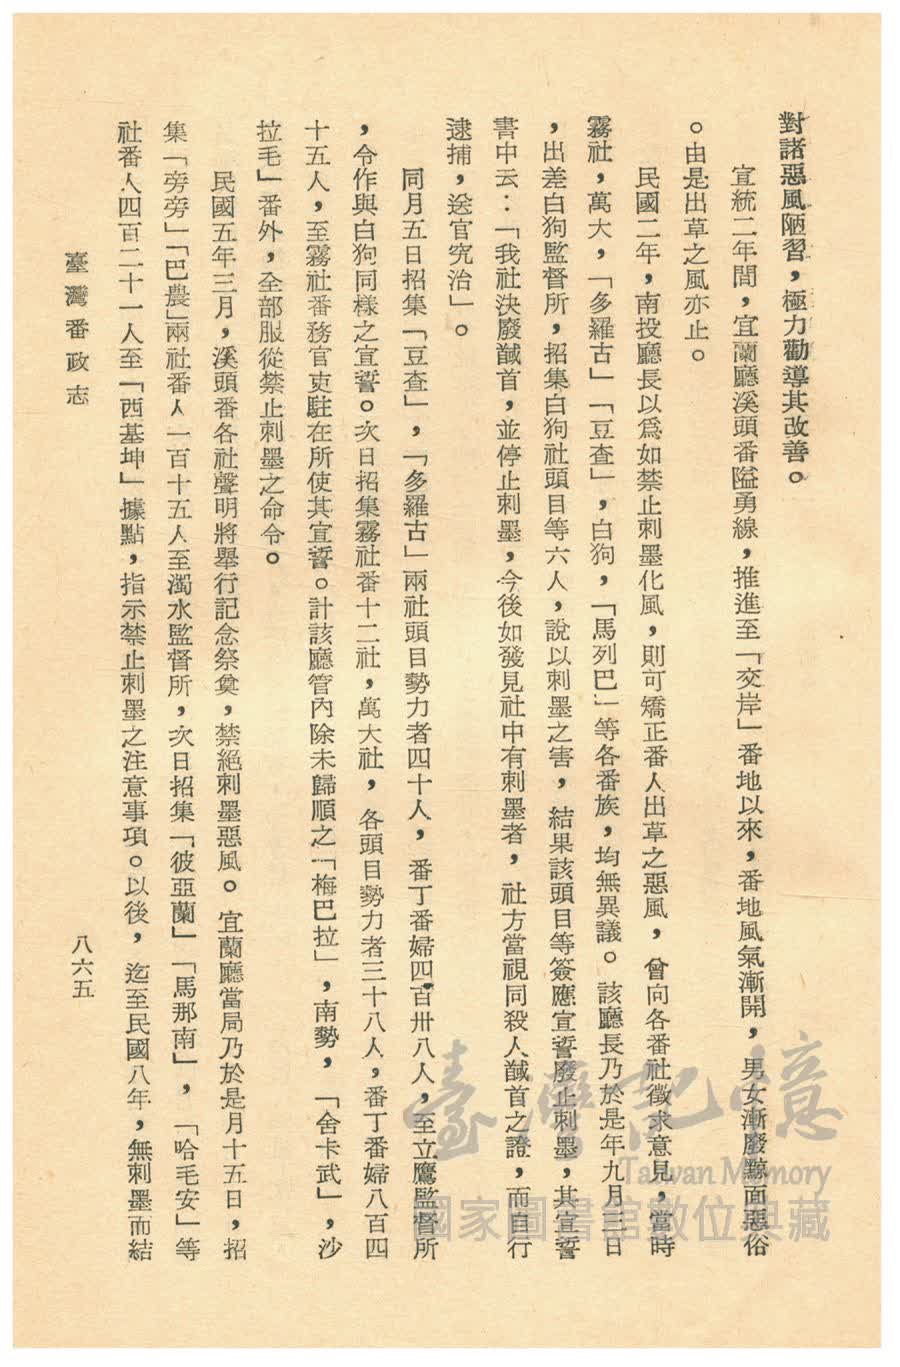 對諸惡風陋習，極力勸導其改善。
宣統二年間，宜蘭廳溪頭番隘勇線，推進至「交岸」番地以來，番地風氣漸開，男女漸廢黥面惡俗
。由是出草之風亦止。
民國二年，南投廳長以爲如禁止刺墨化風，則可矯正番人出草之惡風，曾向各番社徵求意見，當時
霧社，萬大，「多羅古」「豆查」，白狗，「馬列巴」等各番族，均無異議。該廳長乃於是年九月三日
，出差白狗監督所，招集白狗社頭目等六人，說以刺墨之害，結果該頭目等簽應宣誓廢止刺墨，其宣誓
書中云：「我社決廢馘首，並停止刺墨，今後如發見社中有刺墨者，社方當視同殺人馘首之證，而自行
逮捕，送官究治」。
同月五日招集「豆查」，「多羅古」兩社頭目勢力者四十人，番丁番婦四百卅八人，至立鷹監督所
，令作與白狗同樣之宣誓。次日招集霧社番十二社，萬大社，各頭目勢力者三十八人，番丁番婦八百四
十五人，至霧社番務官吏駐在所使其宣誓。計該廳管內除未歸順之「梅巴拉」，南勢，「舍卡武」，沙
拉毛」番外，全部服從禁止刺墨之命令。
民國五年三月，溪頭番各社聲明將舉行記念祭奠，禁絕刺墨惡風。宜蘭廳當局乃於是月十五日，招
集「旁旁」「巴農」兩社番人一百十五人至濁水監督所，次日招集「彼亞蘭」「馬那南」，「哈毛安」等
社番人四百二十一人至「西基坤」據點，指示禁止刺墨之注意事項。以後，迄至民國八年，無刺墨而結
臺灣番政志
八六五
臺灣記憶
Taiwan Memory
國家圖書館數位典藏